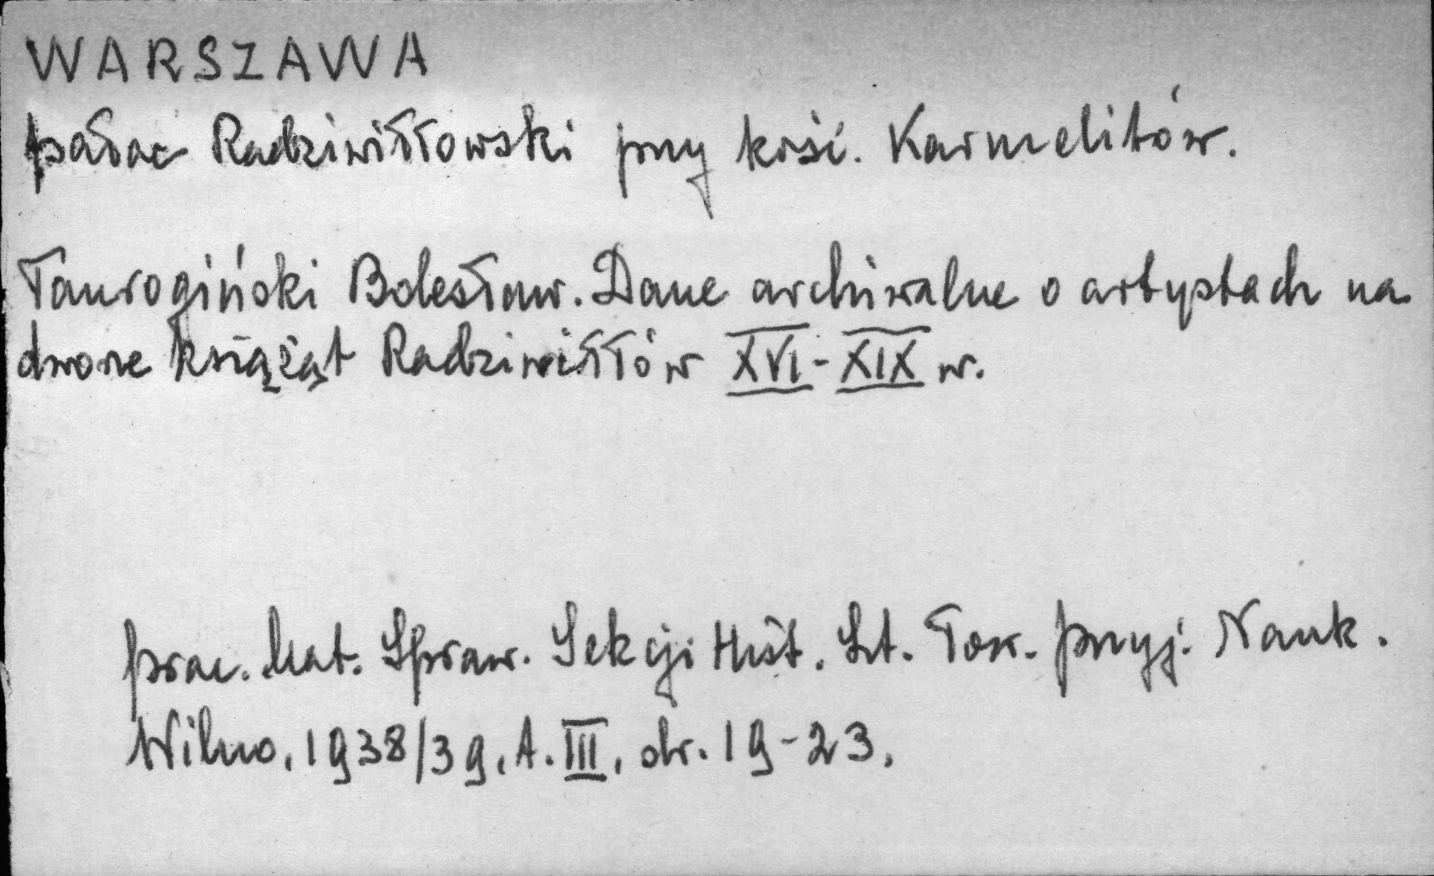 WARSZAWA
pałac Radziwiłłowski przy kość. Karmelitów.
Taurogiński Bolesław. Dane archiwalne o artystach na
dworze książąt Radziwiłłów XVI-XIX w.
prac. Mat. Spraw. Sekcji Hist. Szt. Tow. przyj. Nauk.
Wilno, 1938/39, t. III, str. 19-23.